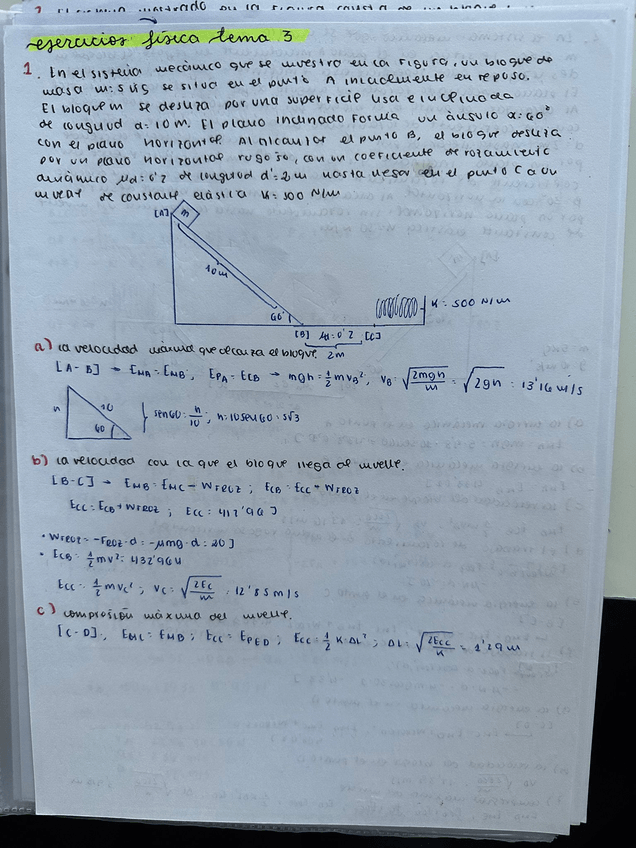 ejercicios física tema 3
1. En el sistema mecánico que se muestra en la figura, un bloque de
masa m=5kg se situa en el punto A inicialmente en reposo.
El bloque m se desliza por una superficie lisa e inclinada
de longitud d=10m. El plano inclinado forma un ángulo α=60°
con el plano horizontal. Al alcanzar el punto B, el bloque desliza
por un plano horizontal rugoso, con un coeficiente de rozamiento
dinámico μd=0'2 de longitud d'=2m hasta llegar en el punto C a un
muelle de constante elástica K=500 N/m
[A] m
10m
60°
K=500 N/m
[B] μ=0'2 [C]
2m
a) la velocidad máxima que alcanza el bloque.
[A-B] → EMA=EMB, EPA=ECB → mgh=½mvB², vB=√(2mgh/m)=√2gh=13'16 m/s
h 10 60
sen60=h/10; h=10sen60=5√3
b) la velocidad con la que el bloque llega al muelle.
[B-C] → EMB=EMC-WFROZ; ECB=ECC-WFROZ
ECC=ECB+WFROZ; ECC=412'96J
• WFROZ=-FROZ·d=-μmg·d=20J
• ECB=½mv²=432'964
ECC=½mvC²; vC=√(2EC/m)=12'85m/s
c) compresión máxima del muelle.
[C-D], EMC=EMB; ECC=EPED; ECC=½K·ΔL²; ΔL=√(2ECC/K)=1'29m